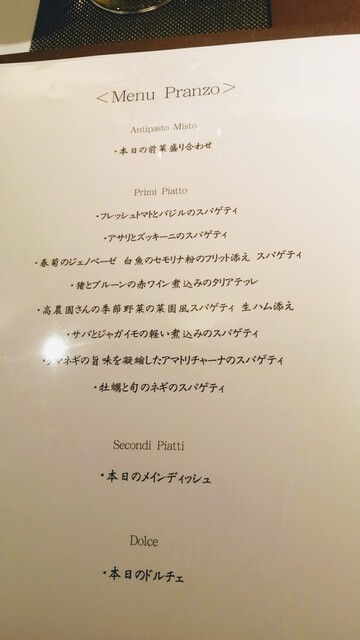 <Menu Pranzo>
Antipasto Misto
・本日の前菜盛り合わせ
Primi Piatto
・フレッシュトマトとバジルのスパゲティ
・アサリとズッキーニのスパゲティ
・春菊のジェノベーゼ 白魚のセモリナ粉のフリット添え スパゲティ
・猪とプルーンの赤ワイン煮込みのタリアテッレ
・高農園さんの季節野菜の菜園風スパゲティ 生ハム添え
・サバとジャガイモの軽い煮込みのスパゲティ
マネギの旨味を凝縮したアマトリチャーナのスパゲティ
・牡蠣と旬のネギのスパゲティ
Secondi Piatti
・本日のメインディッシュ
Dolce
・本日のドルチェ